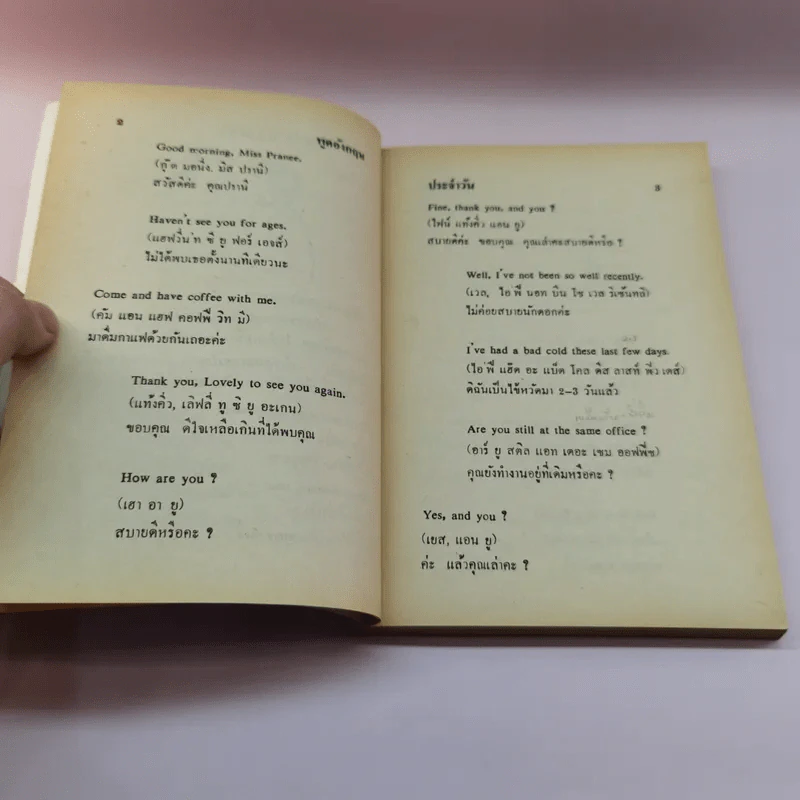 ๒
พูดอังกฤษ
Good morning, Miss Pranee.
(กู๊ด มอนิ่ง, มิส ปรานี)
สวัสดีค่ะ คุณปรานี
Haven't see you for ages.
(แฮฟวึ่น'ท ซี ยู ฟอร์ เอจส์)
ไม่ได้พบเธอตั้งนานทีเดียวนะ
Come and have coffee with me.
(คัม แอน แฮฟ คอฟฟี่ วิท มี)
มาดื่มกาแฟด้วยกันเถอะค่ะ
Thank you, Lovely to see you again.
(แท้งคิ่ว, เลิฟลี่ ทู ซี ยู อะเกน)
ขอบคุณ ดีใจเหลือเกินที่ได้พบคุณ
How are you ?
(เฮา อา ยู)
สบายดีหรือคะ ?
ประจำวัน
๓
Fine, thank you, and you ?
(ไฟน์ แท้งคิ่ว แอน ยู)
สบายดีค่ะ ขอบคุณ คุณเล่าคะสบายดีหรือ ?
Well, I've not been so well recently.
(เวล, ไอ'ฟ นอท บีน โซ เวล รีเซ้นทลี)
ไม่ค่อยสบายนักดอกค่ะ
I've had a bad cold these last few days.
(ไอ'ฟ แฮ็ด อะ แบ็ด โคล ดีส ลาสท์ ฟิว เดส์)
ดิฉันเป็นไข้หวัดมา 2-3 วันแล้ว
Are you still at the same office ?
(อาร์ ยู สติล แอท เดอะ เซม ออฟฟิซ)
คุณยังทำงานอยู่ที่เดิมหรือคะ ?
Yes, and you ?
(เยส, แอน ยู)
ค่ะ แล้วคุณเล่าคะ ?